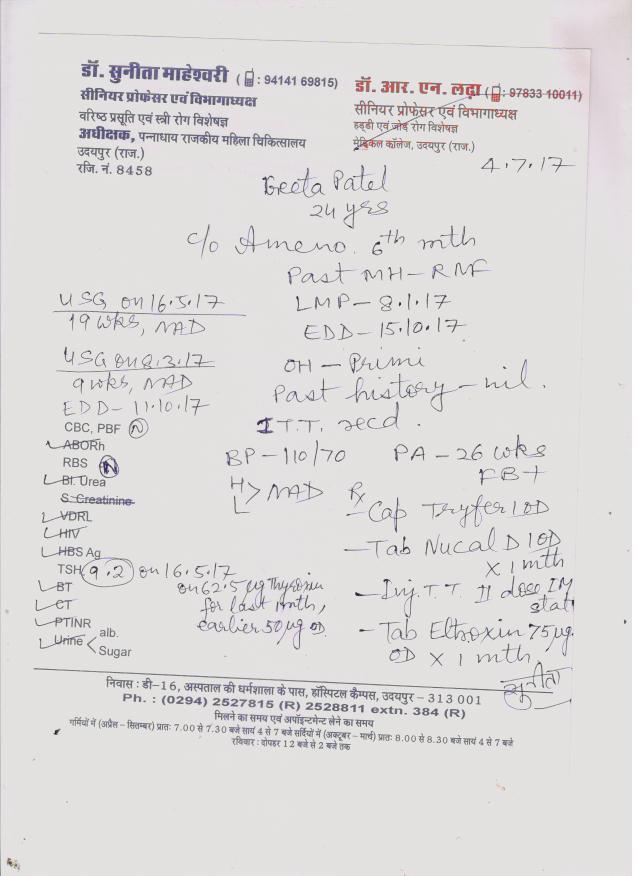 डॉ. सुनीता माहेश्वरी ( : 94141 69815)
सीनियर प्रोफेसर एवं विभागाध्यक्ष
वरिष्ठ प्रसूति एवं स्त्री रोग विशेषज्ञ
अधीक्षक, पन्नाधाय राजकीय महिला चिकित्सालय
उदयपुर (राज.)
रजि. नं. 8458
डॉ. आर. एन. लढ़ा ( : 97833 10011)
सीनियर प्रोफेसर एवं विभागाध्यक्ष
हड्डी एवं जोड़ रोग विशेषज्ञ
मेडिकल कॉलेज, उदयपुर (राज.)
4.7.17
Geeta Patel
24 yrs
c/o Ameno. 6th mth
Past MH - RMF
LMP - 8.1.17
EDD - 15.10.17
OH - Primi
Past history - nil.
I T.T. recd.
BP - 110/70 PA - 26 wks
FB +
H
L > NAD
USG on 16.5.17
19 wks, NAD
USG on 8.3.17
9 wks, NAD
EDD - 11.10.17
CBC, PBF N
ABORh
RBS N
Bl. Urea
S. Creatinine
VDRL
HIV
HBS Ag
TSH 9.2 on 16.5.17
BT
CT
PTINR
Urine < alb.
Sugar
on 62.5 µg Thyroxin
for last 1 mth,
earlier 50 µg OD
Rx
- Cap Tryfer 1 OD
- Tab Nucal D 1 OD
X 1 mth
- Inj. T.T. II dose IM
stat
- Tab Eltroxin 75 µg.
OD X 1 mth
सुनीता
निवास : डी-16, अस्पताल की धर्मशाला के पास, हॉस्पिटल कैम्पस, उदयपुर - 313 001
Ph. : (0294) 2527815 (R) 2528811 extn. 384 (R)
मिलने का समय एवं अपॉइन्टमेंट लेने का समय
गर्मियों में (अप्रैल - सितम्बर) प्रातः 7.00 से 7.30 बजे सायं 4 से 7 बजे सर्दियों में (अक्टूबर - मार्च) प्रातः 8.00 से 8.30 बजे सायं 4 से 7 बजे
रविवार : दोपहर 12 बजे से 2 बजे तक